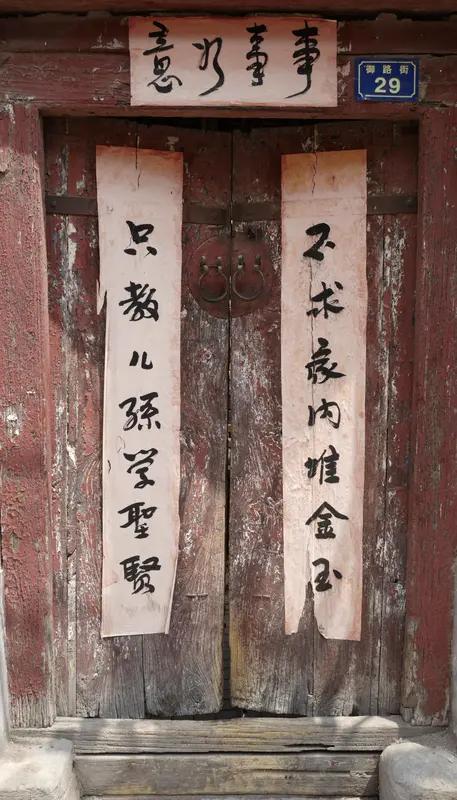 事事如意
御路街
29
不求家内堆金玉
只教儿孫学聖賢